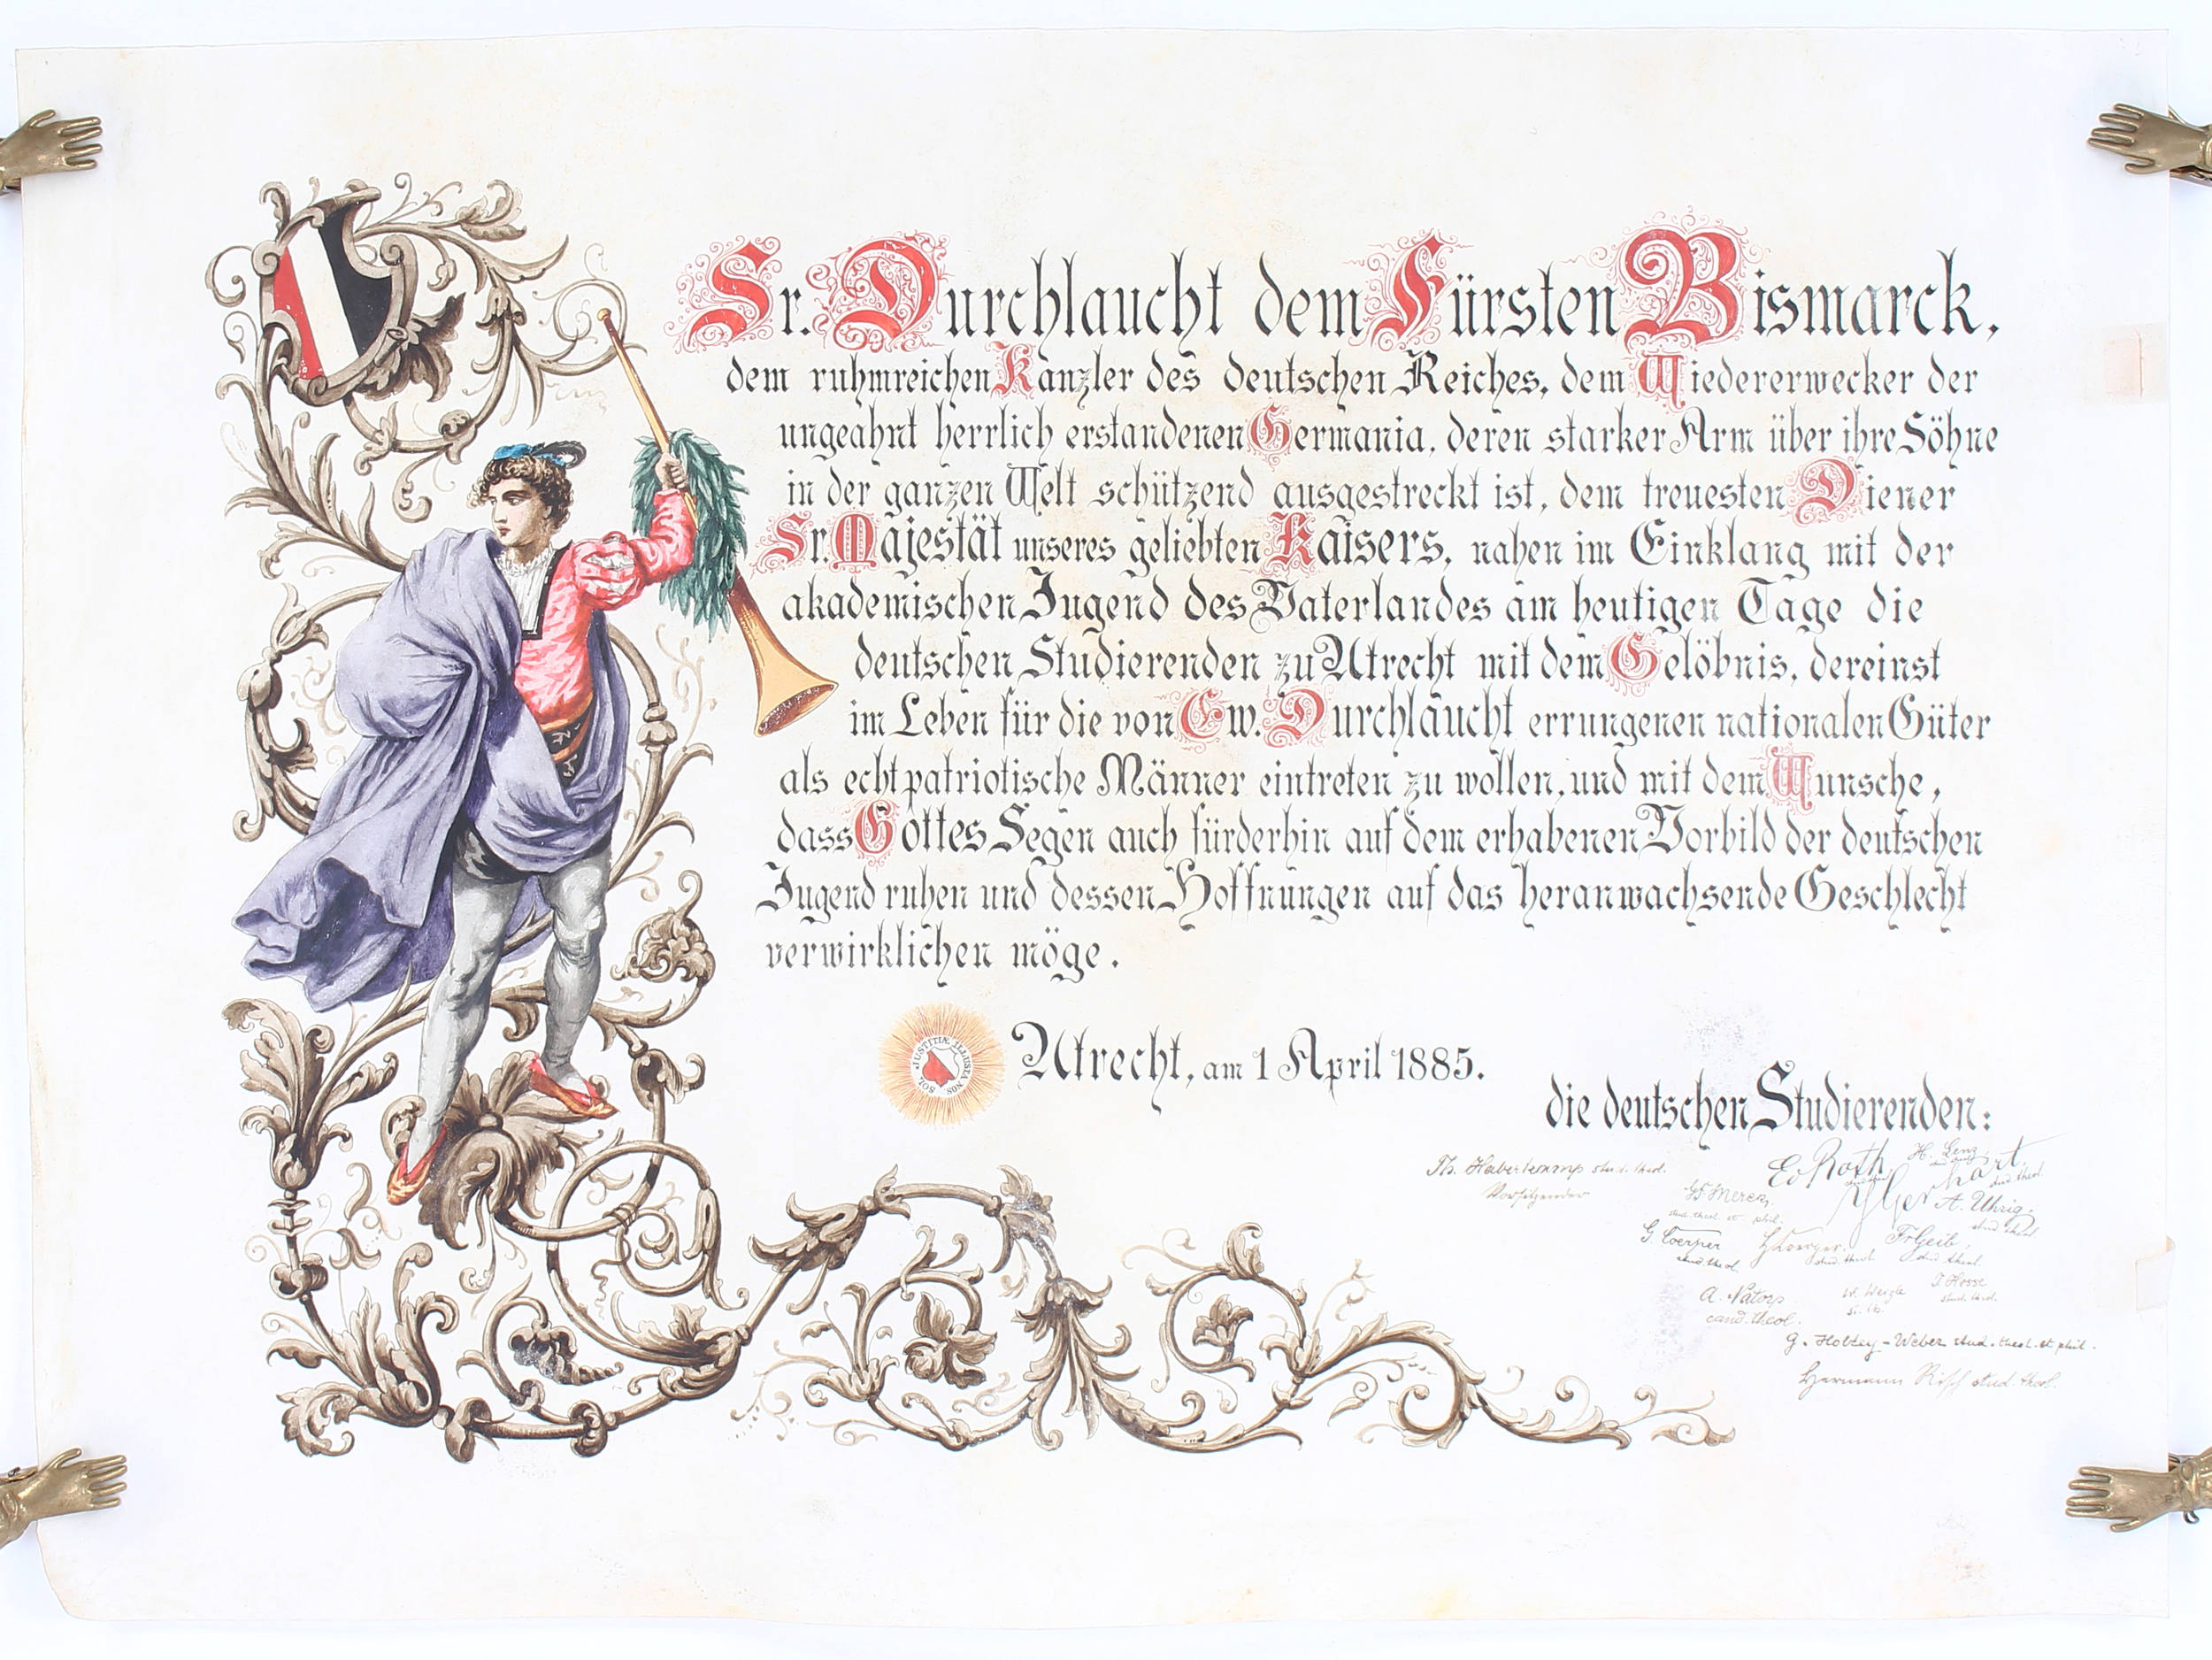 Sr. Durchlaucht dem Fürsten Bismarck,
dem ruhmreichen Kanzler des deutschen Reiches, dem Wiedererwecker der
ungeahnt herrlich erstandenen Germania, deren starker Arm über ihre Söhne
in der ganzen Welt schützend ausgestreckt ist, dem treuesten Diener
Sr. Majestät unseres geliebten Kaisers, nahen im Einklang mit der
akademischen Jugend des Vaterlandes am heutigen Tage die
deutschen Studierenden zu Utrecht mit dem Gelöbnis, dereinst
im Leben für die von Ew. Durchlaucht errungenen nationalen Güter
als echt patriotische Männer eintreten zu wollen, und mit dem Wunsche,
dass Gottes Segen auch fürderhin auf dem erhabenen Vorbild der deutschen
Jugend ruhen und dessen Hoffnungen auf das heranwachsende Geschlecht
verwirklichen möge.
SOL JUSTITIÆ ILLUSTRA NOS
Utrecht, am 1 April 1885.
die deutschen Studierenden:
Th. Haberkamp stud. theol.
Vorsitzender
Ed Roth
H. Lenz
W Meren
stud. theol. et phil.
A. Uhrig.
stud. theol
G. Coerper
stud. theol.
stud. theol.
Fr Geib,
stud. theol.
A. Natorp
cand. theol.
W. Weigle
st. th.
J. Hosse
stud. theol.
G. Holtey-Weber stud. theol. et phil.
Hermann Risch stud. theol.